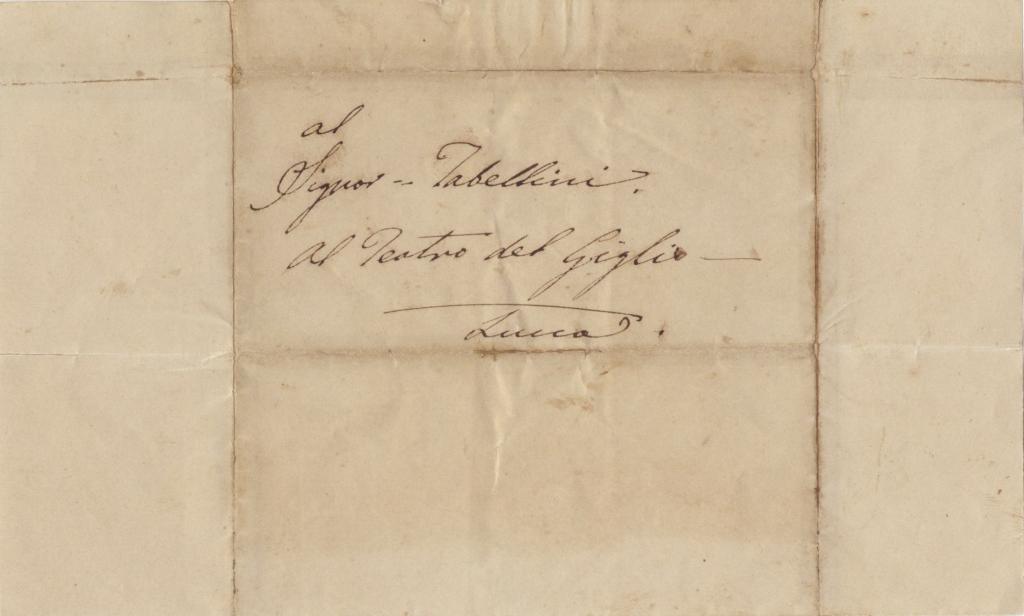 al
Signor - Tabellini.
Al Teatro del Giglio —
Lucca.